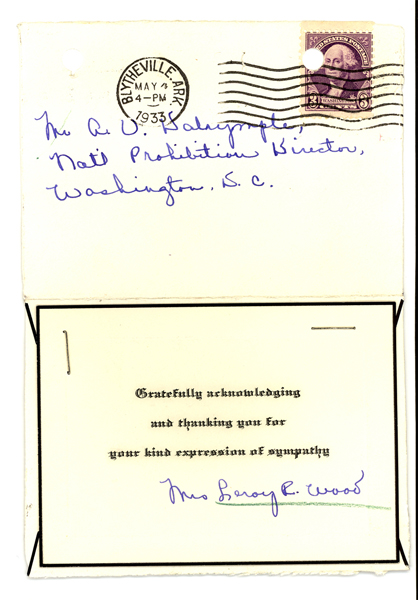 BLYTHEVILLE, ARK.
MAY 4
4-PM
1933
UNITED STATES POSTAGE
3 WASHINGTON 3
Mr A. V. Dalrymple,
Nat'l Prohibition Director,
Washington, D. C.
Gratefully acknowledging
and thanking you for
your kind expression of sympathy
Mrs Leroy R. Wood